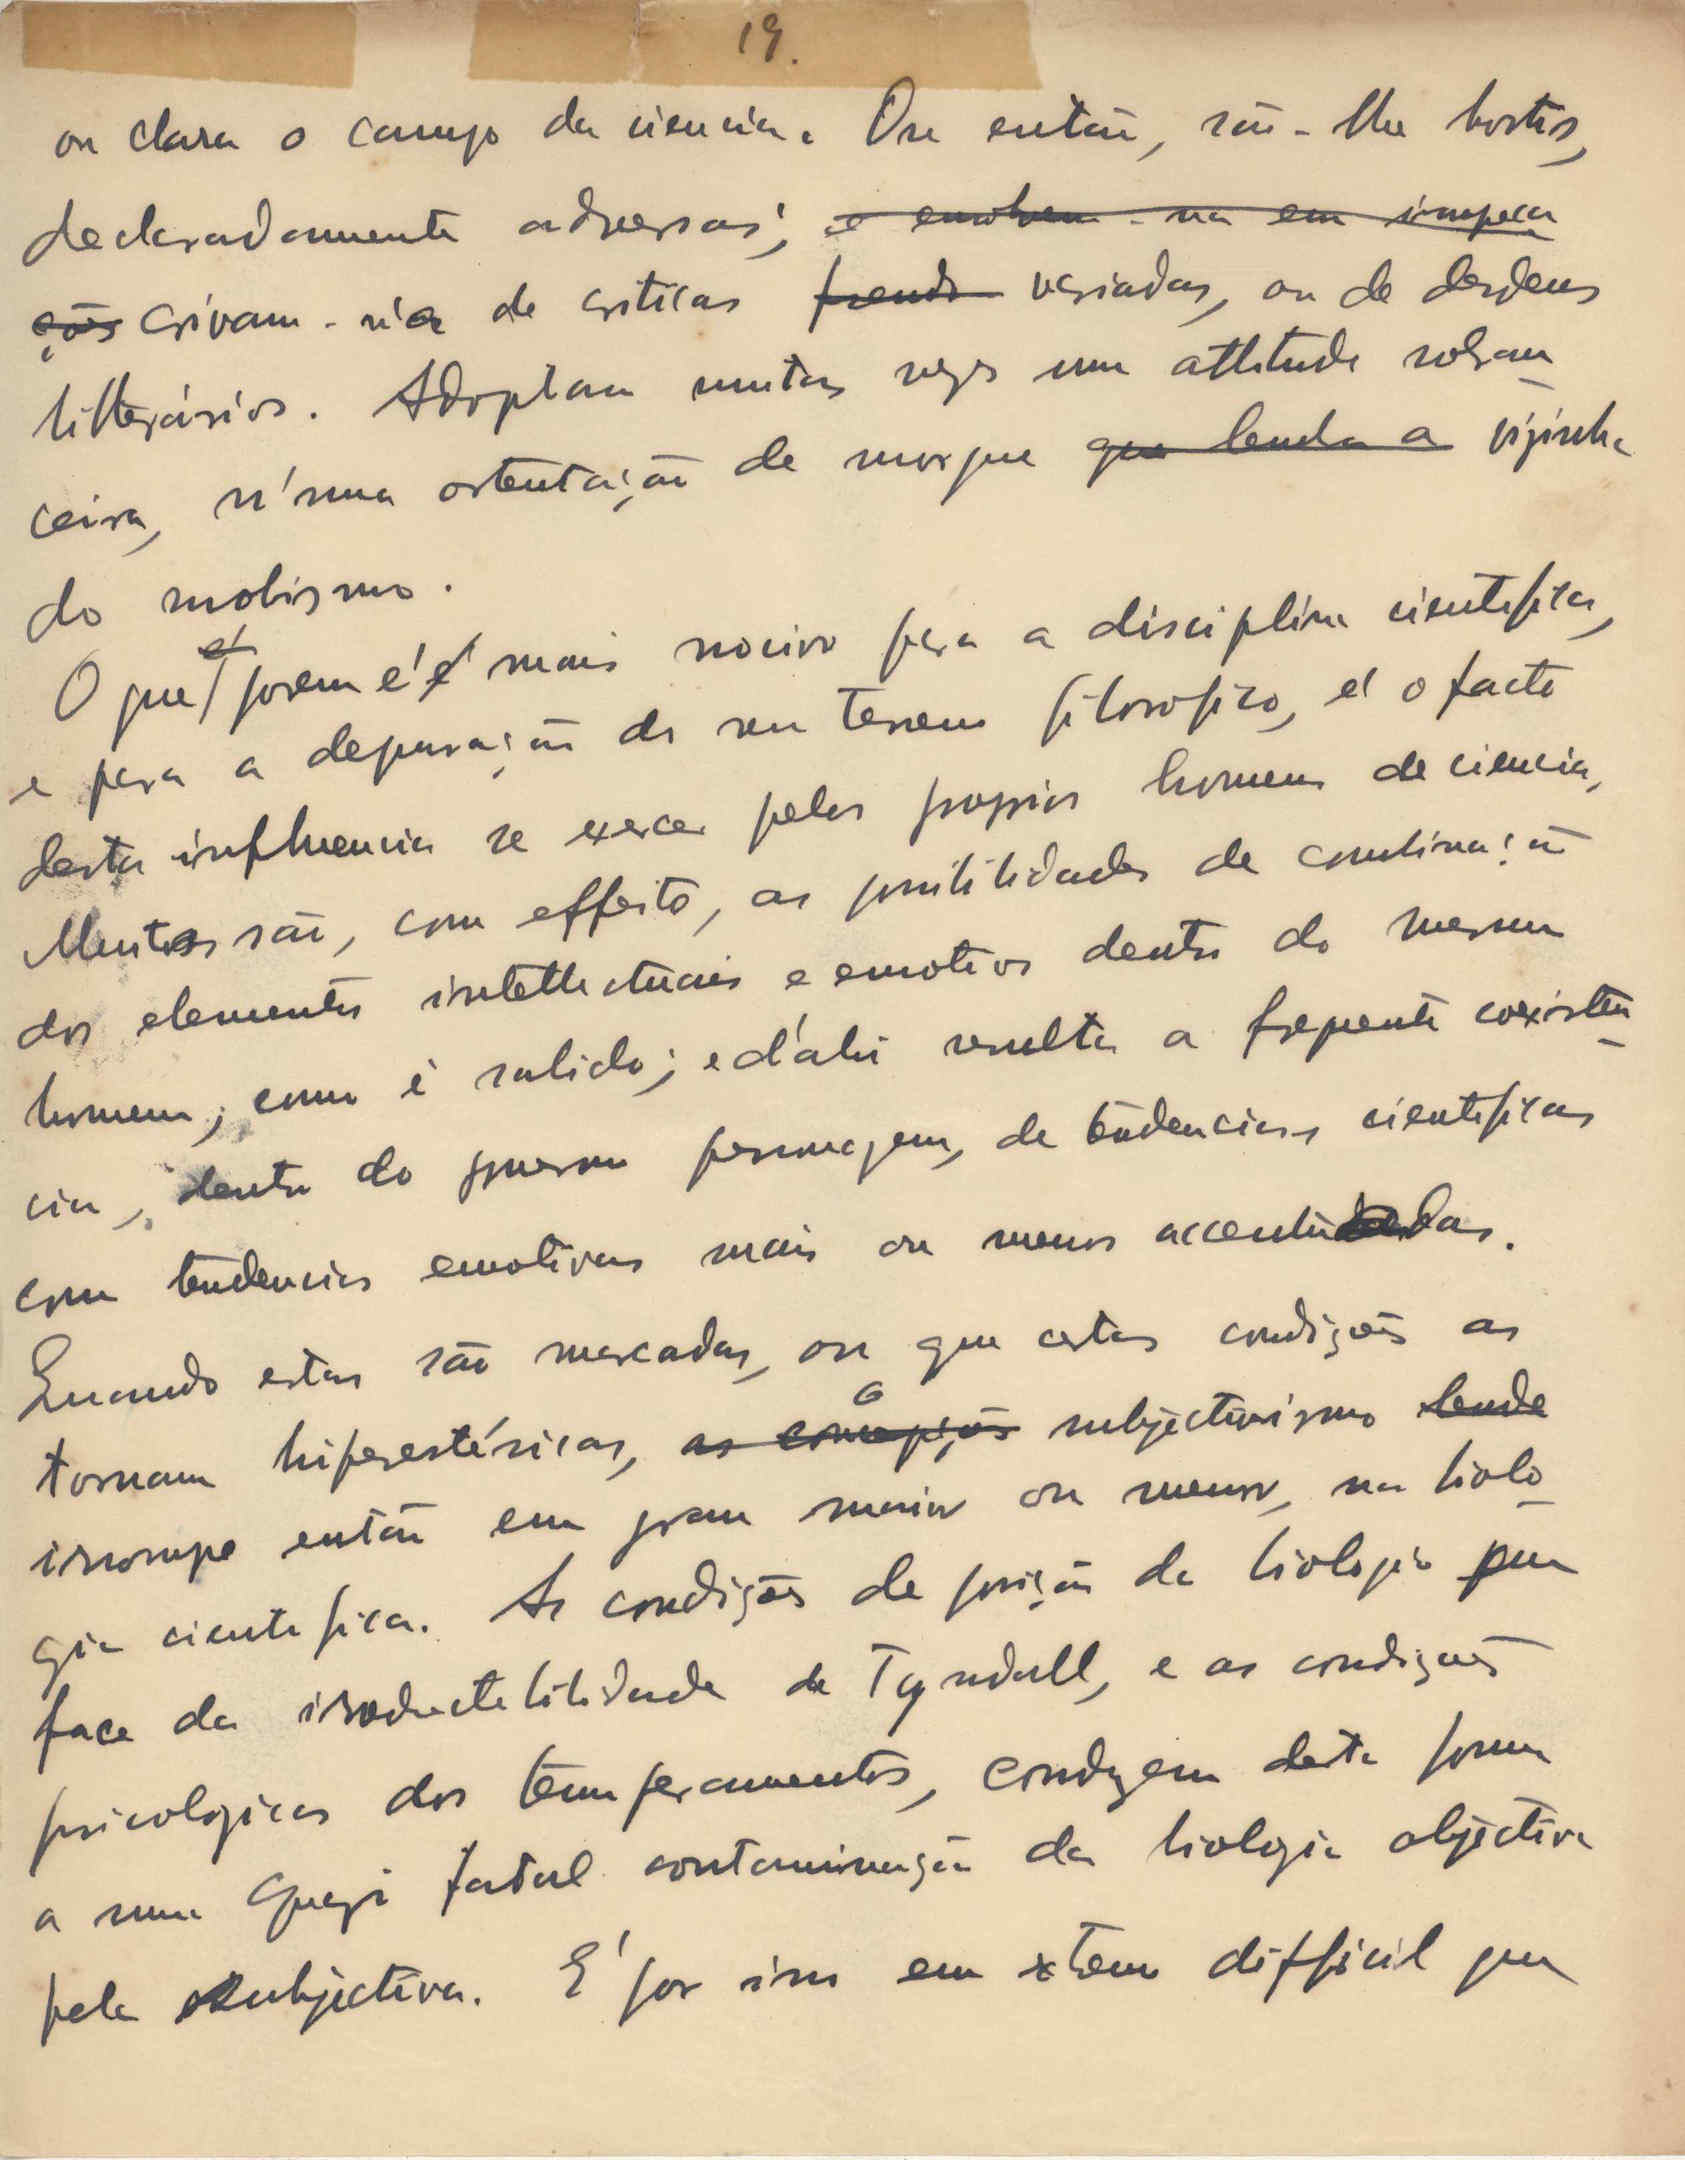 19.
ou clara o campo da ciencia. Ou então, são-lhe hostis,
declaradamente adversas; e envolvem-na em impreca
ções crivam-n'a de criticas variadas, ou de desdens
litterários. Adoptam muitas vezes uma attitude sobran_
ceira, n'uma ostentação de morgue que tenda a vizinha
do snobismo.
O que porem é mais nocivo para a disciplina cientifica,
e para a depuração do seu terreno filosofico, é o facto
desta influencia se exercer pelos proprios homens de ciencia,
Muitas são, com effeito, as possibilidades de combinação
dos elementos intellectuais e emotivos dentro do mesmo
homem, como é sabido; e d'ahi resulta a frequente coexistên_
cia, dentro do mesmo personagem, de tendencias cientificas
com tendencias emotivas mais ou menos accentuadas.
Quando estas são marcadas, ou que certas condições as
tornam hiperestésicas, as concepções o subjectivismo tende
irrompe então em grau maior ou menor, na biolo_
gia cientifica. As condições de posição da biologia em
face da irreductibilidade de Tyndall, e as condições
psicologicas dos temperamentos, conduzem desta forma
a uma quazi fatal contaminação da biologia objectiva
pela subjectiva. E' por isso em extremo difficil que